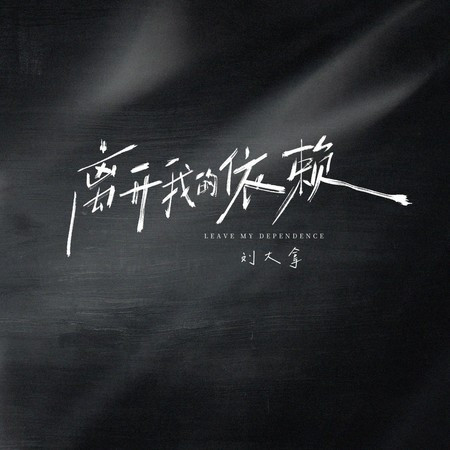 离开我的依赖
LEAVE MY DEPENDENCE
刘大拿